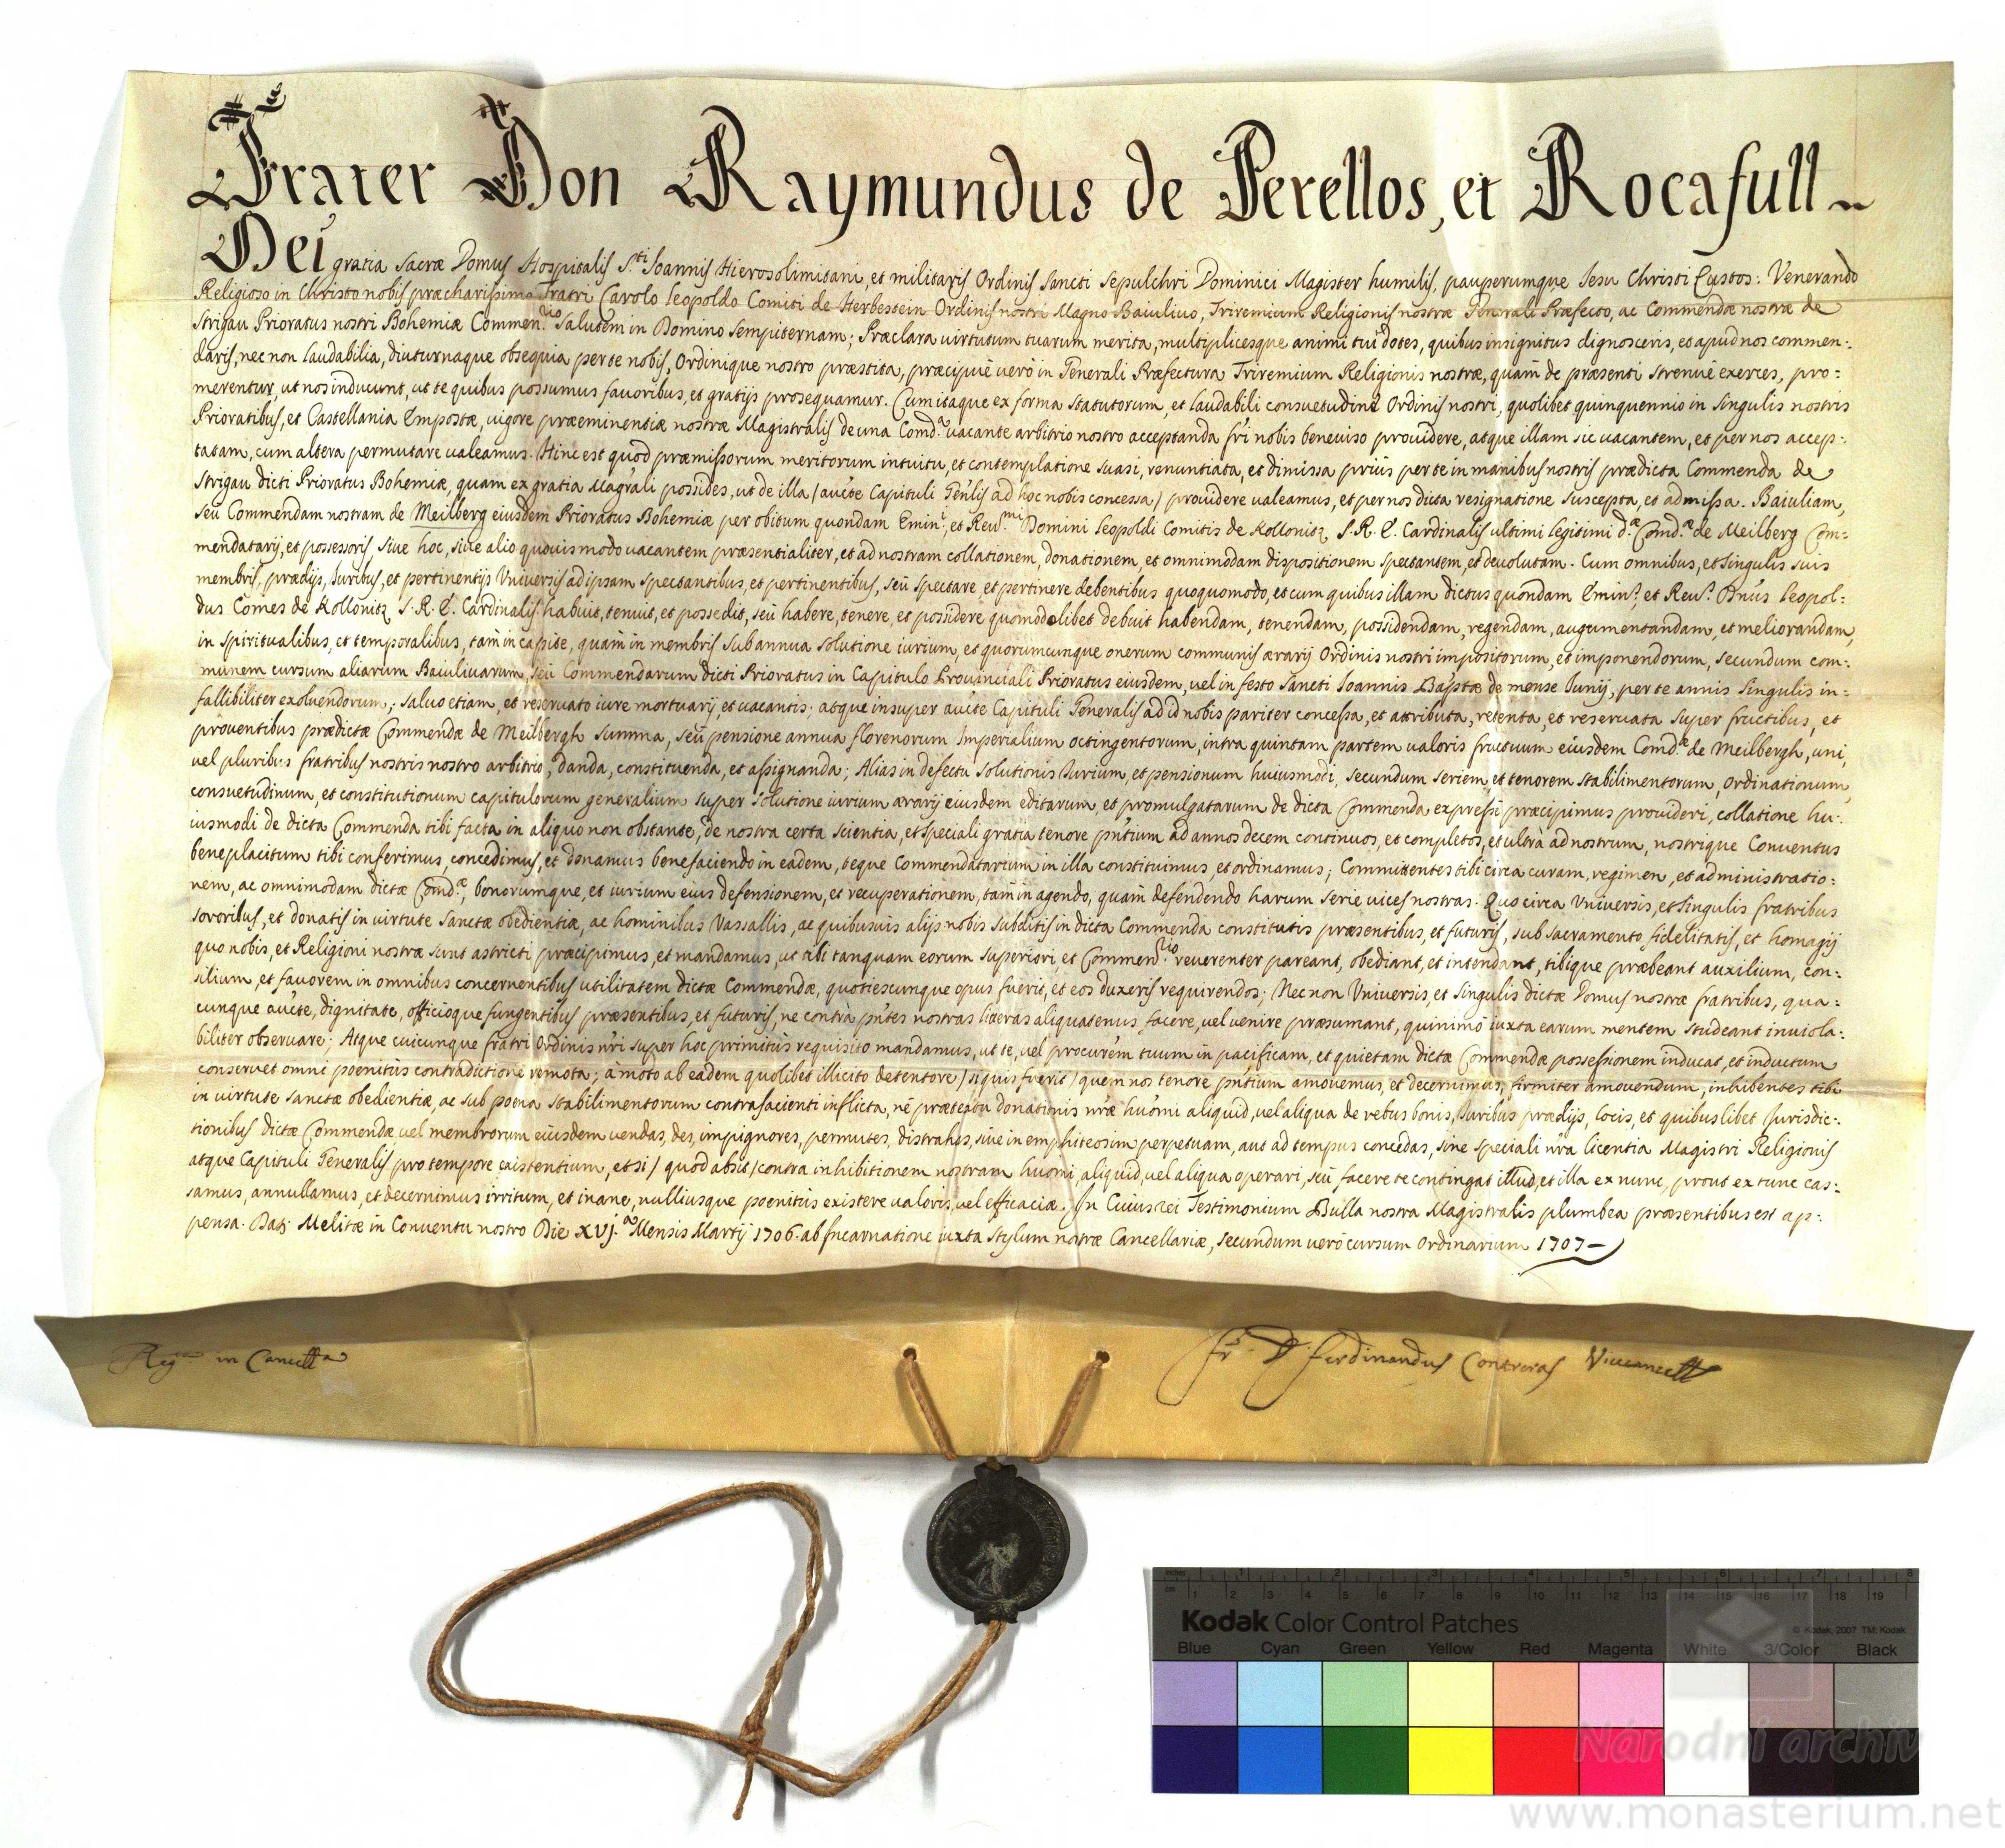 Frater Don Raymundus de Perellos, et Rocafull
Dei gratia Sacræ Domus Hospitalis S.ti Ioannis Hierosolimitani, et militaris Ordinis Sancti Sepulchri Dominici Magister humilis, pauperumque Iesu Christi Custos: Venerando
Religioso in Christo nobis præcharissimo Fratri Carolo Leopoldo Comiti de Herbestein Ordinis nostri Magno Baiulivo, Triremium Religionis nostræ Generali Præfecto, ac Commendæ nostræ de
Strigau Prioratus nostri Bohemiæ Commen.rio Salutem in Domino Sempiternam; Præclara virtutum tuarum merita, multiplicesque animi tui dotes, quibus insignitus dignosceris, et apud nos commen-:
daris, nec non laudabilia, diuturnaque obsequia per te nobis, Ordinique nostro præstita, præcipuè verò in Generali Præfectura Triremium Religionis nostræ, quam de præsenti strenuè exerces, pro=
merentur, ut nos inducunt, ut te quibus possumus favoribus, et gratijs prosequamur. Cum itaque ex forma Statutorum, et laudabili consuetudine Ordinis nostri, quolibet quinquennio in Singulis nostris
Prioratibus, et Castellania Empostæ, vigore præeminentiæ nostræ Magistralis de una Comd.a vacante arbitrio nostro acceptanda fri nobis beneviso providere, atque illam sic vacantem, et per nos accep-:
tatam, cum altera permutare valeamus. Hinc est quod præmissorum meritorum intuitu, et contemplatione suasi, renuntiata, et dimissa priùs per te in manibus nostris prædicta Commenda de
Strigau dicti Prioratus Bohemiæ, quam ex gratia Magrali possides, ut de illa / aucte Capituli Gnlis ad hoc nobis concessa / providere valeamus, et per nos dicta resignatione suscepta, et admissa. Baiuliam,
seù Commendam nostram de Meilberg eiusdem Prioratus Bohemiæ per obitum quondam Emin.i, et Rev.mi Domini Leopoldi Comitis de Kollonitz S. R. E. Cardinalis ultimi legitimi d.æ Comd.æ de Meilberg Com=
mendatarij, et possessoris, sive hoc, sive alio quovis modo vacantem præsentialiter, et ad nostram collationem, donationem, et omnimodam dispositionem spectantem, et devolutam. Cum omnibus, et Singulis suis
membris, prædijs, Iuribus, et pertinentijs Universis ad ipsam spectantibus, et pertinentibus, seù spectare et pertinere debentibus quoquomodo, et cum quibus illam dictus quondam Emin.s, et Rev.s Dnus Leopol-:
dus Comes de Kollonitz S. R. E. Cardinalis habuit, tenuit, et possedit, seù habere, tenere, et possidere quomodolibet debuit habendam, tenendam, possidendam, regendam, augumentandam, et meliorandam,
in Spiritualibus, et temporalibus, tam in capite, quam in membris sub annua solutione iurium, et quorumcunque onerum communis ærarij Ordinis nostri impositorum, et imponendorum, secundum com-:
munem cursum aliarum Baiulivarum, seù Commendarum dicti Prioratus in Capitulo Provinciali Prioratus eiusdem, vel in festo Sancti Ioannis Baptæ de mense Iunij, per te annis Singulis in-
fallibiliter exolvendorum; Salvo etiam, et reservato iure mortuarij, et vacantis; atque insuper aucte Capituli Generalis ad id nobis pariter concessa, et attributa, retenta, et reservata super fructibus, et
proventibus prædictæ Commendæ de Meilbergh Summa, seù pensione annua florenorum Imperialium octingentorum, intra quintam partem valoris fructuum eiusdem Comd.æ de Meilbergh, uni,
vel pluribus fratribus nostris nostro arbitrio, danda, constituenda, et assignanda; Alias in defectu solutionis Iurium, et pensionum huiusmodi, secundum seriem, et tenorem Stabilimentorum, Ordinationum,
consuetudinum, et constitutionum capitulorum generalium super Solutione iurium ærarij eiusdem editarum, et promulgatarum de dicta Commenda expressè præcipimus provideri, collatione hu-:
iusmodi de dicta Commenda tibi facta in aliquo non obstante, de nostra certa scientia, et speciali gratia tenore pntium ad annos decem continuos, et completos, et ultrà ad nostrum, nostrique Conventus
beneplacitum tibi conferimus, concedimus, et donamus benefaciendo in eadem, teque Commendatarium in illa constituimus, et ordinamus; Committentes tibi circa curam, regimen, et administratio=
nem, ac omnimodam dictæ Comd.æ, bonorumque, et iurium eius defensionem, et recuperationem, tam in agendo, quam defendendo harum serie vices nostras. Quo circa Universis, et Singulis fratribus
sororibus, et donatis in virtute Sanctæ obedientiæ, ac hominibus Vassallis, ac quibusvis alijs nobis Subditis in dicta Commenda constitutis præsentibus, et futuris, sub Sacramento fidelitatis, et homagij
quo nobis, et Religioni nostræ sunt astricti præcipimus, et mandamus, ut tibi tanquam eorum Superiori, et Commen.rio reverenter pareant, obediant, et intendant, tibique præbeant auxilium, con=
silium, et favorem in omnibus concernentibus utilitatem dictæ Commendæ, quotiescunque opus fuerit, et eos duxeris requirendos; Nec non Universis, et Singulis dictæ Domus nostræ fratribus, qua=
cunque aucte, dignitate, officioque fungentibus præsentibus, et futuris, ne contrà pntes nostras literas aliquatenus facere, vel venire præsumant, quinimò iuxta earum mentem studeant inviola-:
biliter observare; Atque cuicunque fratri Ordinis nri super hoc primitùs requisito mandamus, ut te, vel procurem tuum in pacificam, et quietam dictæ Commendæ possessionem inducat, et inductum
conservet omni poenitùs contradictione remota; amoto ab eadem quolibet illicito detentore / siquis fuerit / quem nos tenore pntium amovemus, et decernimus, firmiter amovendum, inhibentes tibi
in virtute Sanctæ obedientiæ, ac sub poena Stabilimentorum contrafacienti inflicta, nè prætextu donationis nræ huomi aliquid, vel aliqua de rebus bonis, Iuribus prædijs, locis, et quibuslibet Iurisdic-:
tionibus dictæ Commendæ vel membrorum eiusdem vendas, des, impignores, permutes, distrahas, sive in emphiteosim perpetuam, aut ad tempus concedas, sine speciali nra licentia Magistri Religionis
atque Capituli Generalis pro tempore existentium, et si / quod absit / contra inhibitionem nostram huomi aliquid, vel aliqua operari, seù facere te contingat illud, et illa ex nunc, prout ex tunc cas-:
samus, annullamus, et decernimus irritum, et inane, nulliusque poenitùs existere valoris, vel efficaciæ. In Cuius rei Testimonium Bulla nostra Magistralis plumbea præsentibus est ap-:
pensa. Dat; Melitæ in Conventu nostro Die XVJ.a Mensis Martij 1706. ab Incarnatione iuxta Stylum nostræ Cancellariæ, secundum verò cursum Ordinarium 1707
Reg.ta in Cancell.a
Fr. D. Ferdinandus Contreras Vicecancell.
inches
cm
1 2 3 4 5 6 7 8 9 10 11 12 13 14 15 16 17 18 19
Kodak Color Control Patches
© Kodak, 2007 TM: Kodak
Blue Cyan Green Yellow Red Magenta White 3/Color Black
Národní archiv
www.monasterium.net